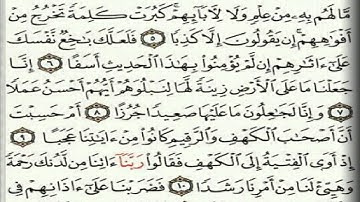 مَّا لَهُم بِهِۦ مِنْ عِلْمٍ وَلَا لِأٓبَآئِهِمْ ۚ كَبُرَتْ كَلِمَةً تَخْرُجُ مِنْ
أَفْوَٰهِهِمْ ۚ إِن يَقُولُونَ إِلَّا كَذِبًا ٥ فَلَعَلَّكَ بَٰخِعٌ نَّفْسَكَ
عَلَىٰٓ ءَاثَٰرِهِمْ إِن لَّمْ يُؤْمِنُوا۟ بِهَٰذَا ٱلْحَدِيثِ أَسَفًا ٦ إِنَّا
جَعَلْنَا مَا عَلَى ٱلْأَرْضِ زِينَةً لَّهَا لِنَبْلُوَهُمْ أَيُّهُمْ أَحْسَنُ عَمَلًا
٧ وَإِنَّا لَجَٰعِلُونَ مَا عَلَيْهَا صَعِيدًا جُرُزًا ٨ أَمْ حَسِبْتَ
أَنَّ أَصْحَٰبَ ٱلْكَهْفِ وَٱلرَّقِيمِ كَانُوا۟ مِنْ ءَايَٰتِنَا عَجَبًا ٩
إِذْ أَوَى ٱلْفِتْيَةُ إِلَى ٱلْكَهْفِ فَقَالُوا۟ رَبَّنَآ ءَاتِنَا مِن لَّدُنكَ رَحْمَةً
وَهَيِّئْ لَنَا مِنْ أَمْرِنَا رَشَدًا ١٠ فَضَرَبْنَا عَلَىٰٓ ءَاذَانِهِمْ فِى